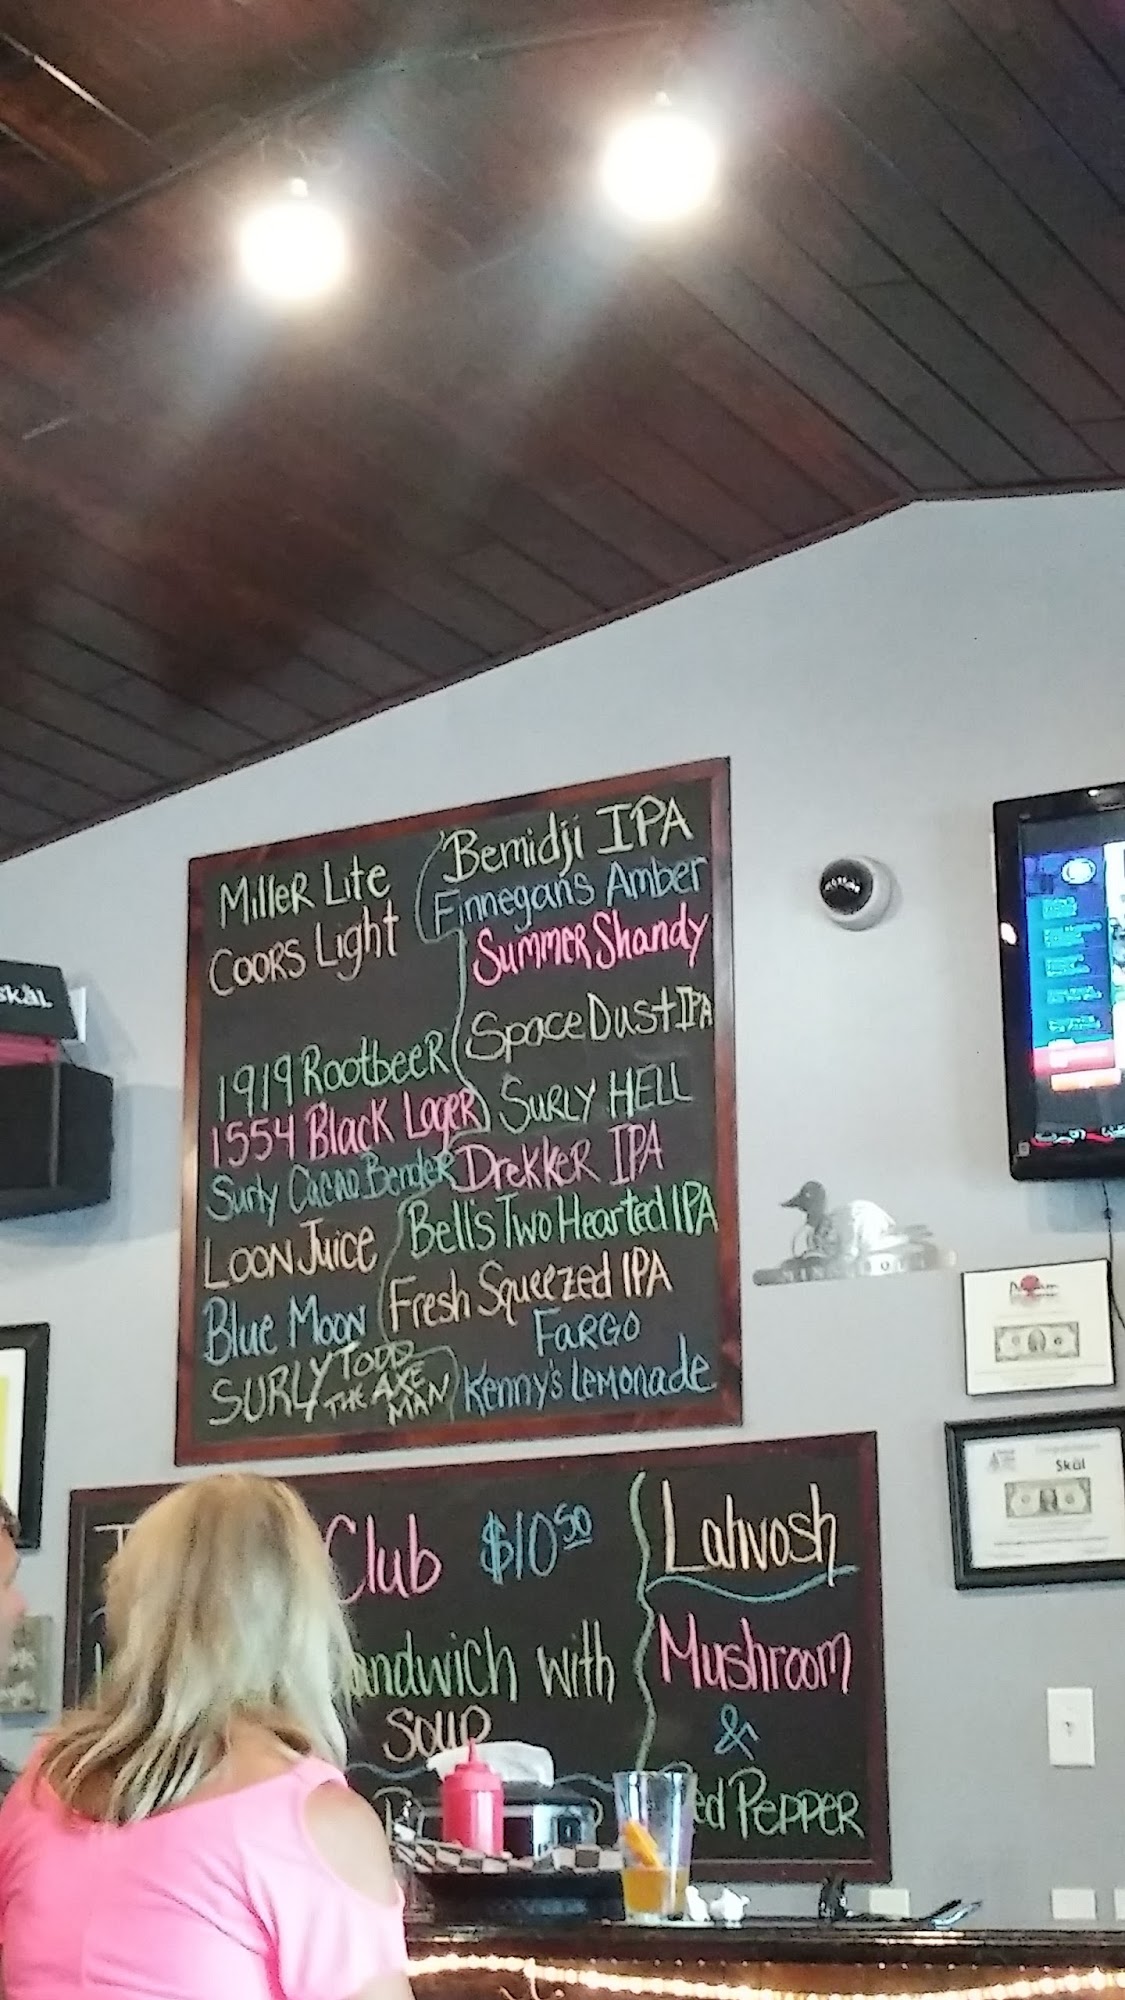 Miller Lite
Coors Light
1919 Rootbeer
1554 Black Lager
Surly Cacao Bender
Loon Juice
Blue Moon
Surly Todd
The Axe
Man
Bemidji IPA
Finnegans Amber
Summer Shandy
Space Dust IPA
Surly HELL
Drekker IPA
Bell's Two Hearted IPA
Fresh Squeezed IPA
Fargo
Kenny's Lemonade
SKÅL
Club $10.50
andwich with
Soup
Lahvosh
Mushroom
&
ed Pepper
Skål